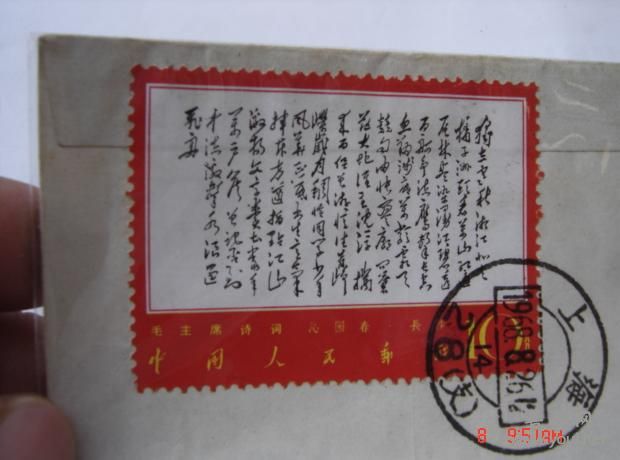 独立寒秋湘江北去
橘子洲头看万山红遍
层林尽染漫江碧透
百舸争流鹰击长空
鱼翔浅底万类霜天
竞自由怅寥廓问苍
茫大地谁主沉浮携
来百侣曾游忆往昔峥
嵘岁月稠恰同学少年
风华正茂书生意气
挥斥方遒指点江山
激扬文字粪土当年
万户侯曾记否到
中流击水浪遏
飞舟
毛主席诗词 沁园春·长
中国人民邮
10
上海
1968.8.26.
14
28(支)
8 9:51AM